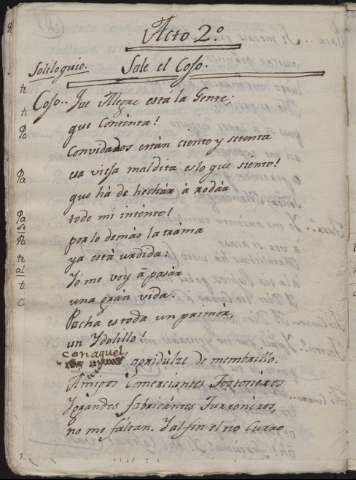 Acto 2.º
Soliloquio. Sale el Coso.
Coso.. Que Alegre está la Gente;
que Contenta!
Convidados están ciento y setenta
esa vieja maldita es lo que siento!
que há de hechár à rodár
todo mi intento!
por lo demás la trama
ya está urdida:
Yo me voy à pasár
una gran vida.
Pacha es toda un pasmóra,
un Ydolillo!
con aquel agridulze de membrillo.
Amigos Comerciantes
Ygrandes fabricántes Turronéres,
no me faltan, dalfin el no Curro